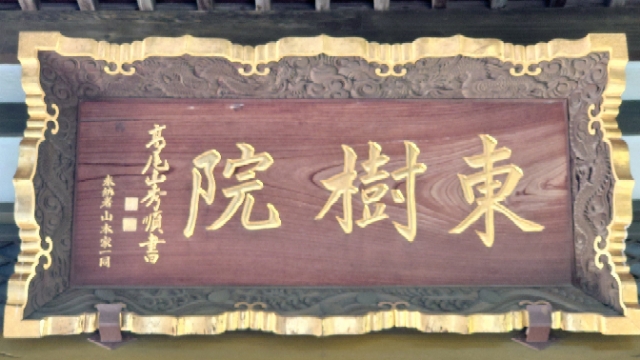 東樹院
高尾山秀順書
奉納者山本家一同